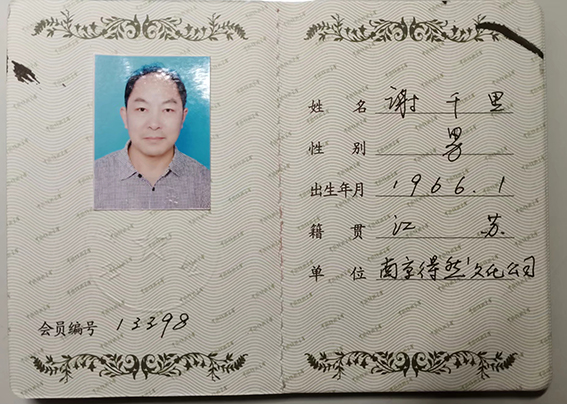 会员编号 13398
姓名 谢千里
性别 男
出生年月 1966.1
籍贯 江苏
单位 南京得然文化公司